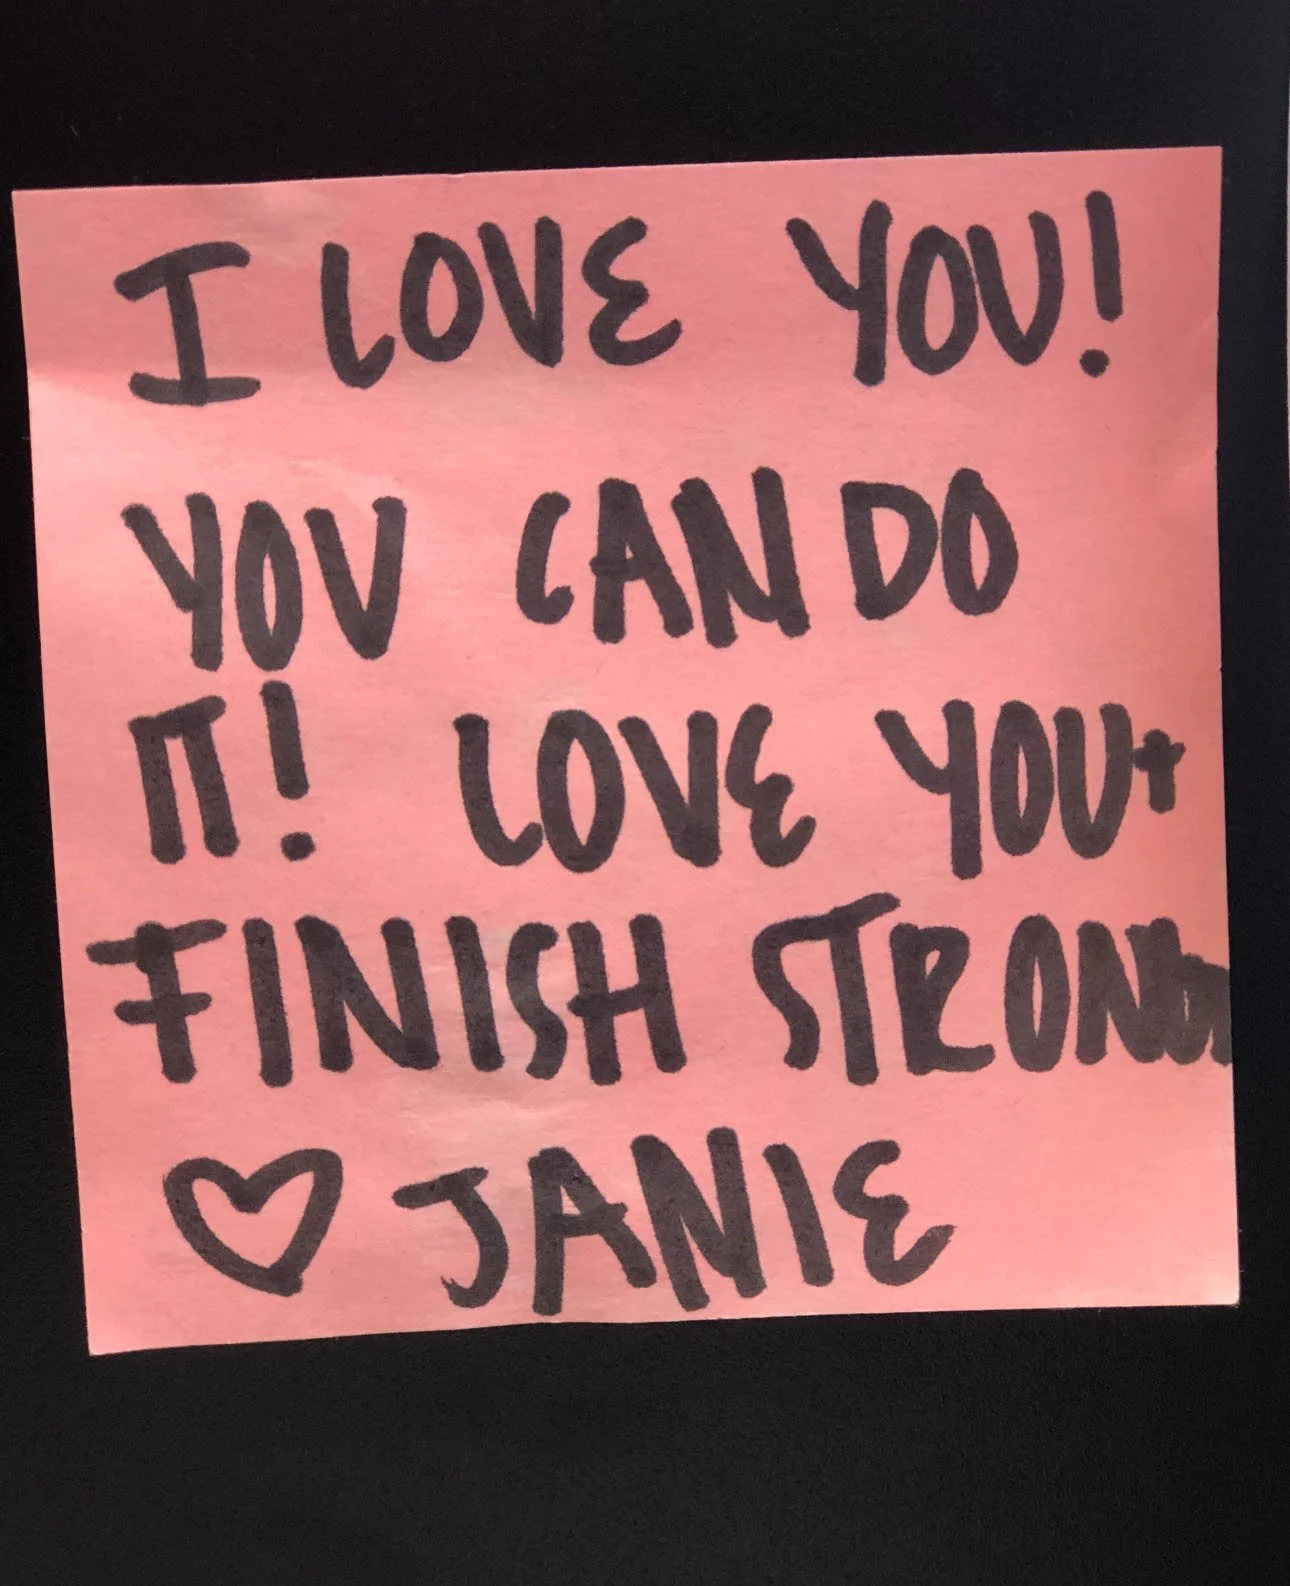 I LOVE YOU!
YOU CAN DO
IT! LOVE YOU+
FINISH STRONG
♡ JANIE